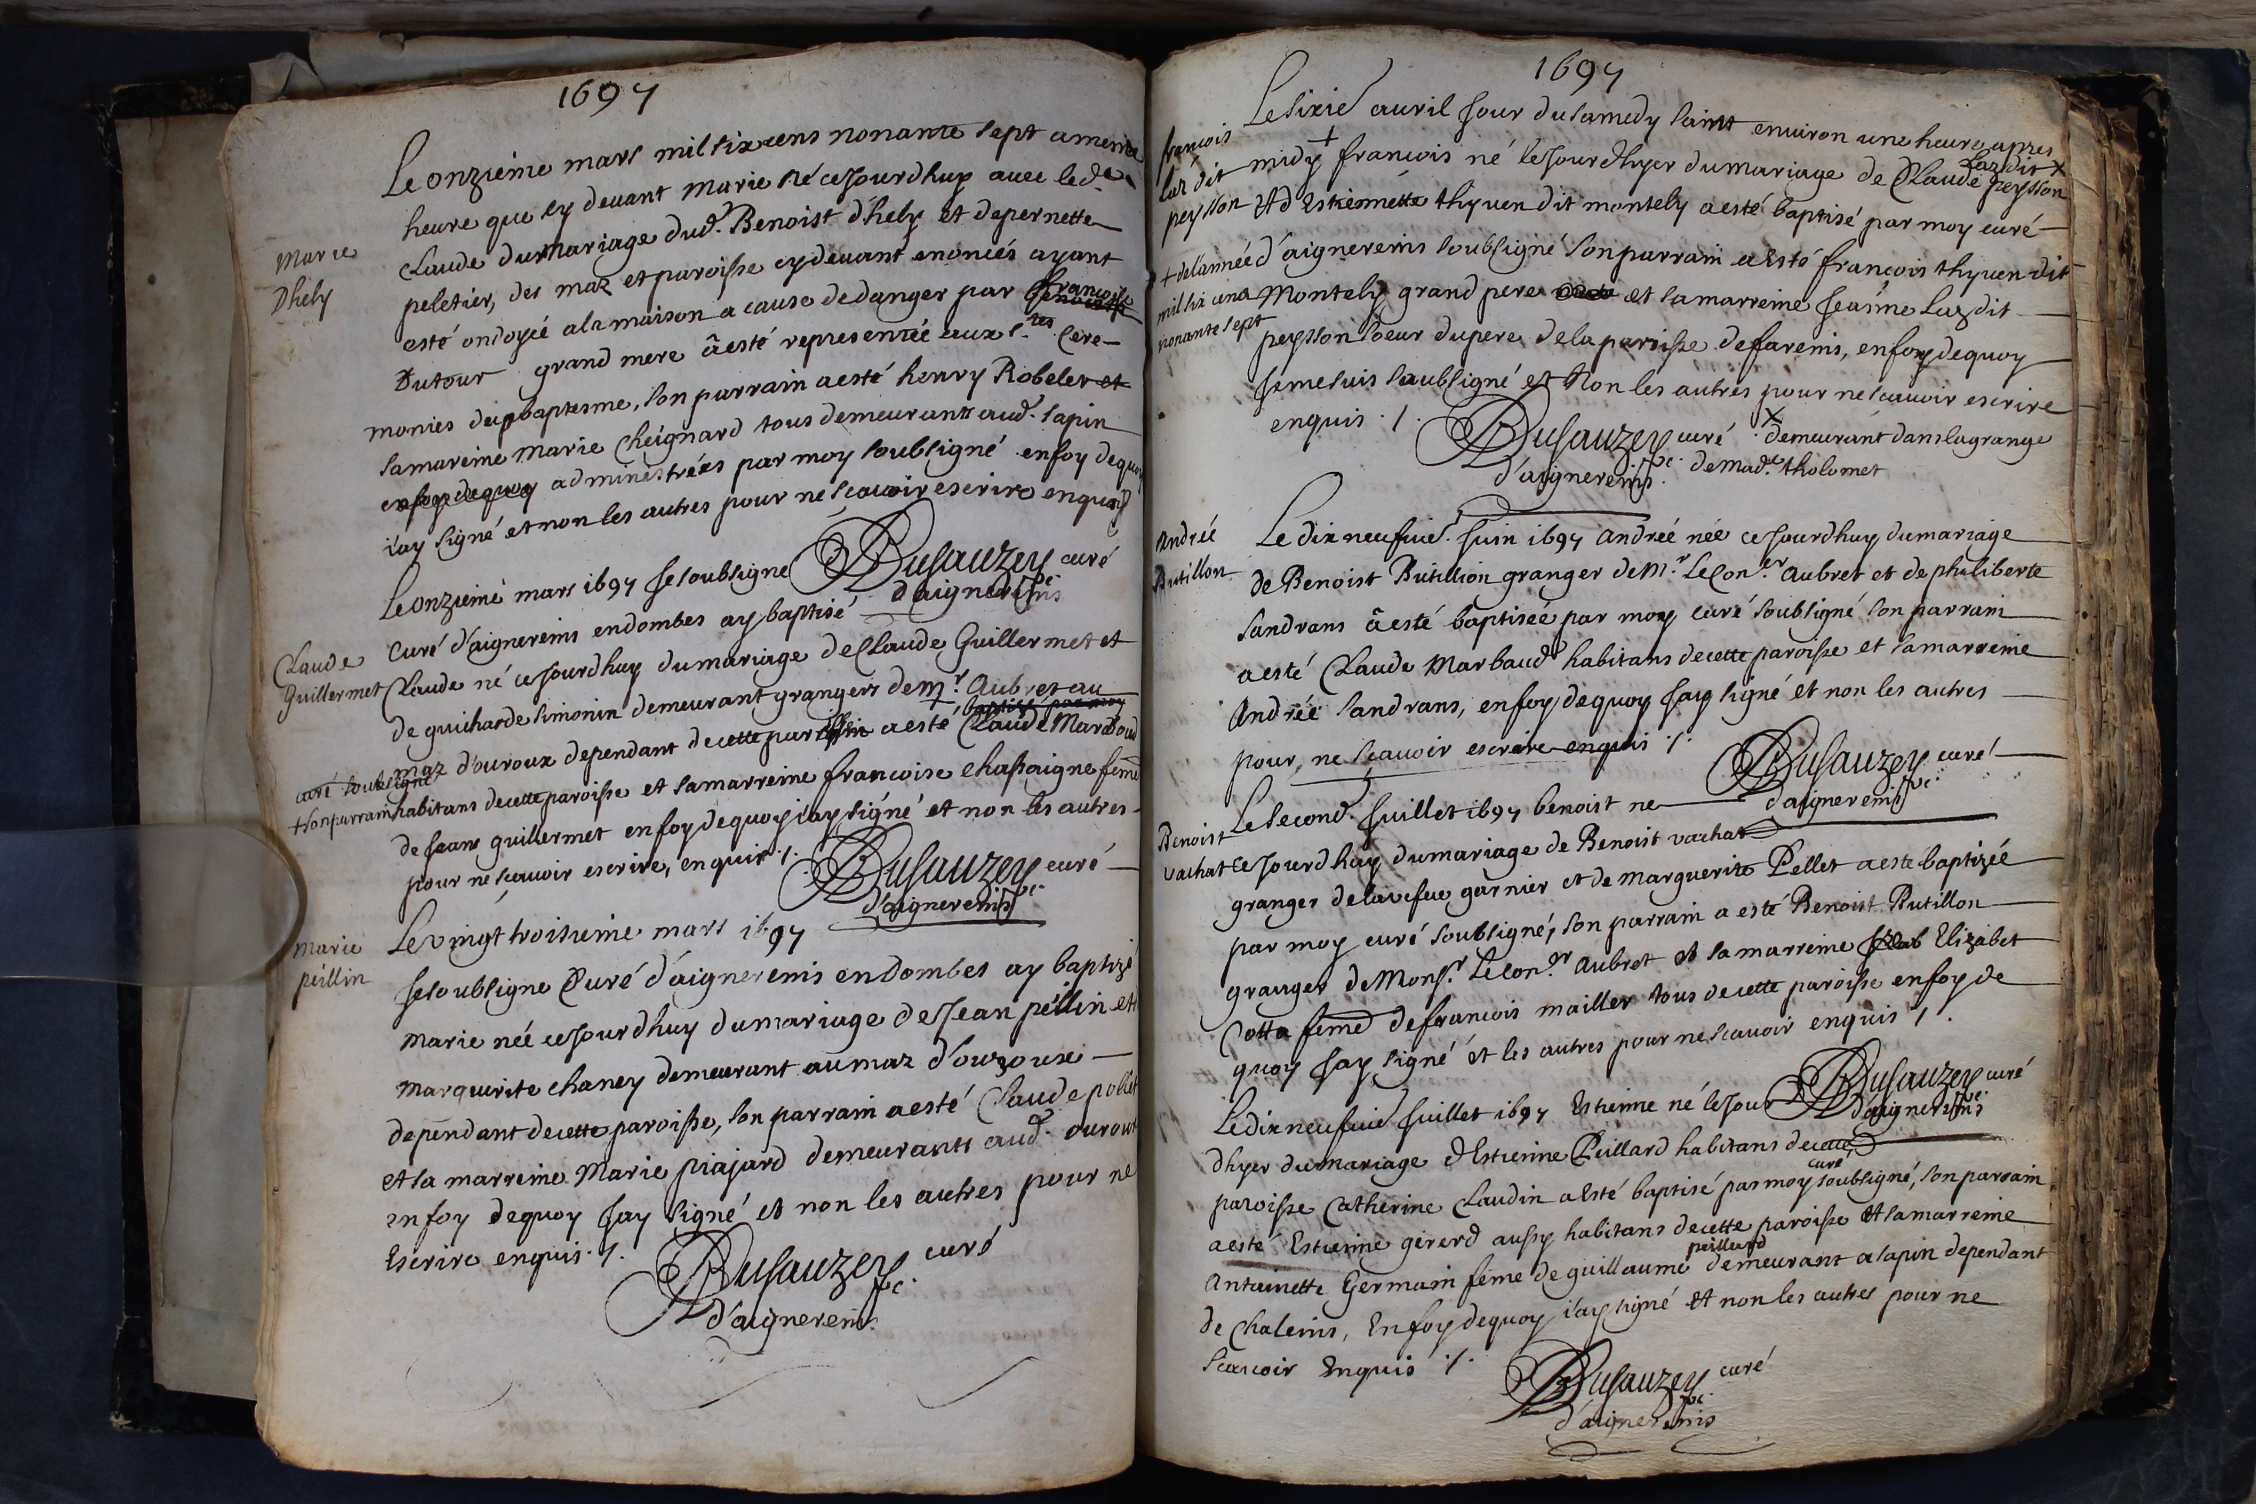 1697
Le onzième mars mil six cens nonante sept a mesme
heure que cy devant Marie né ce jourdhuy avec led.
Claude du mariage dud. Benoist d'hely et de pernette
peletier, des maz et paroisse cy devant enoncés ayant
esté ondoyée a la maison a cause de danger par françoise
Dutour grand mere a esté representée aux stes cere-
monies du baptesme, son parrain a esté henry Robelet et
sa mareine Marie Cheignard tous demeurants aud. sapin
en foy de quoy administrées par moy soubsigné en foy de quoy
i'ay signé et non les autres pour ne scavoir escrire enquis
Marie
Dhely
BDusauzey curé
d'aignereins
Le onzieme mars 1697 Je soubsigne
Curé d'aignereins en dombes ay baptisé
Claude
Guillermet
Claude né ce jourdhuy du mariage de Claude Guillermet et
de guicharde simonin demeurant grangers de mr. Aubret au
maz d'ouroux dependant de cette paroisse a esté Claude Marboud
baptisé par moy
curé soubsigné
+ son parrain
habitans de cette paroisse et sa marreine francoise chassaigne feme
de Jean guillermet en foy de quoy i'ay signé et non les autres
pour ne scavoir escrire, enquis ./.
BDusauzey curé
d'aignereins
Le vingt troisieme mars 1697
marie
peillin
Je soubsigne Curé d'aignereins en Dombes ay baptizé
Marie née ce jourdhuy du mariage de Jean peillin et
Marguerite chaney demeurant au maz d'ouroux
dependant de cette paroisse, son parrain a esté Claude pollet
et sa marreine Marie piajard demeurants aud. ouroux
en foy de quoy Jay signé et non les autres pour ne
Escrire enquis ./.
BDusauzey curé
d'aignereins
1697
Le sixie avril Jour du samedy saint environ une heure apres
françois
laz dit
peysson
midy + francois né le Jour d'hyer du mariage de Claude Laz dit x peysson
Et d'Estiennette thyven dit montely a esté baptisé par moy curé
+ de l'année
mil six cens
nonante sept
d'aignereins soubsigné son parrain a esté françois thyven dit
Montely grand pere et sa marreine Jeanne Laz dit
peysson soeur du pere de la paroisse de fareins, en foy de quoy
Je me suis soubsigné et Non les autres pour ne scavoir escrire
enquis ./.
BDusauzey curé
d'aignereins
x demeurant dans la grange
de made tholomet
Andrée
Butillon
Le dix neufvie. Juin 1697 Andrée née ce jourdhuy du mariage
de Benoist Butillion granger de Mr. Le Coner Aubret et de philiberte
sandrans a esté baptisée par moy curé soubsigné son parrain
a esté Claude Marbaud habitans de cette paroisse et sa marreine
Andrée sandrans, en foy de quoy Jay signé et non les autres
pour ne scavoir escrire enquis ./.
BDusauzey curé
d'aignereins
Le second. Juillet 1697 benoist ne
Benoist
vachat
ce jourdhuy du mariage de Benoist vachat
granger de la vefve garnier et de Marguerite Pellet a esté baptizée
par moy curé soubsigné, son parrain a esté Benoist Butillon
granger de Monsr. Le Coner Aubret et sa marreine Elizabet
Cotta feme de francois mailler tous de cette paroisse en foy de
quoy Jay signé et les autres pour ne scavoir enquis ./.
BDusauzey curé
d'aignereins
Le dix neufvie Juillet 1697 Estienne né le Jour
dhyer du mariage d'Estienne Peillard habitans de cette
paroisse Catherine Claudin a esté baptisé par moy curé soubsigné, son parrain
a esté Estienne girerd aussy habitans de cette paroisse Et sa marreine
Antoinette Germain feme de guillaume peillard demeurant a sapin dependant
de Chaleins, En foy de quoy i'ay signé et non les autres pour ne
scavoir Enquis ./.
BDusauzey curé
d'aignereins